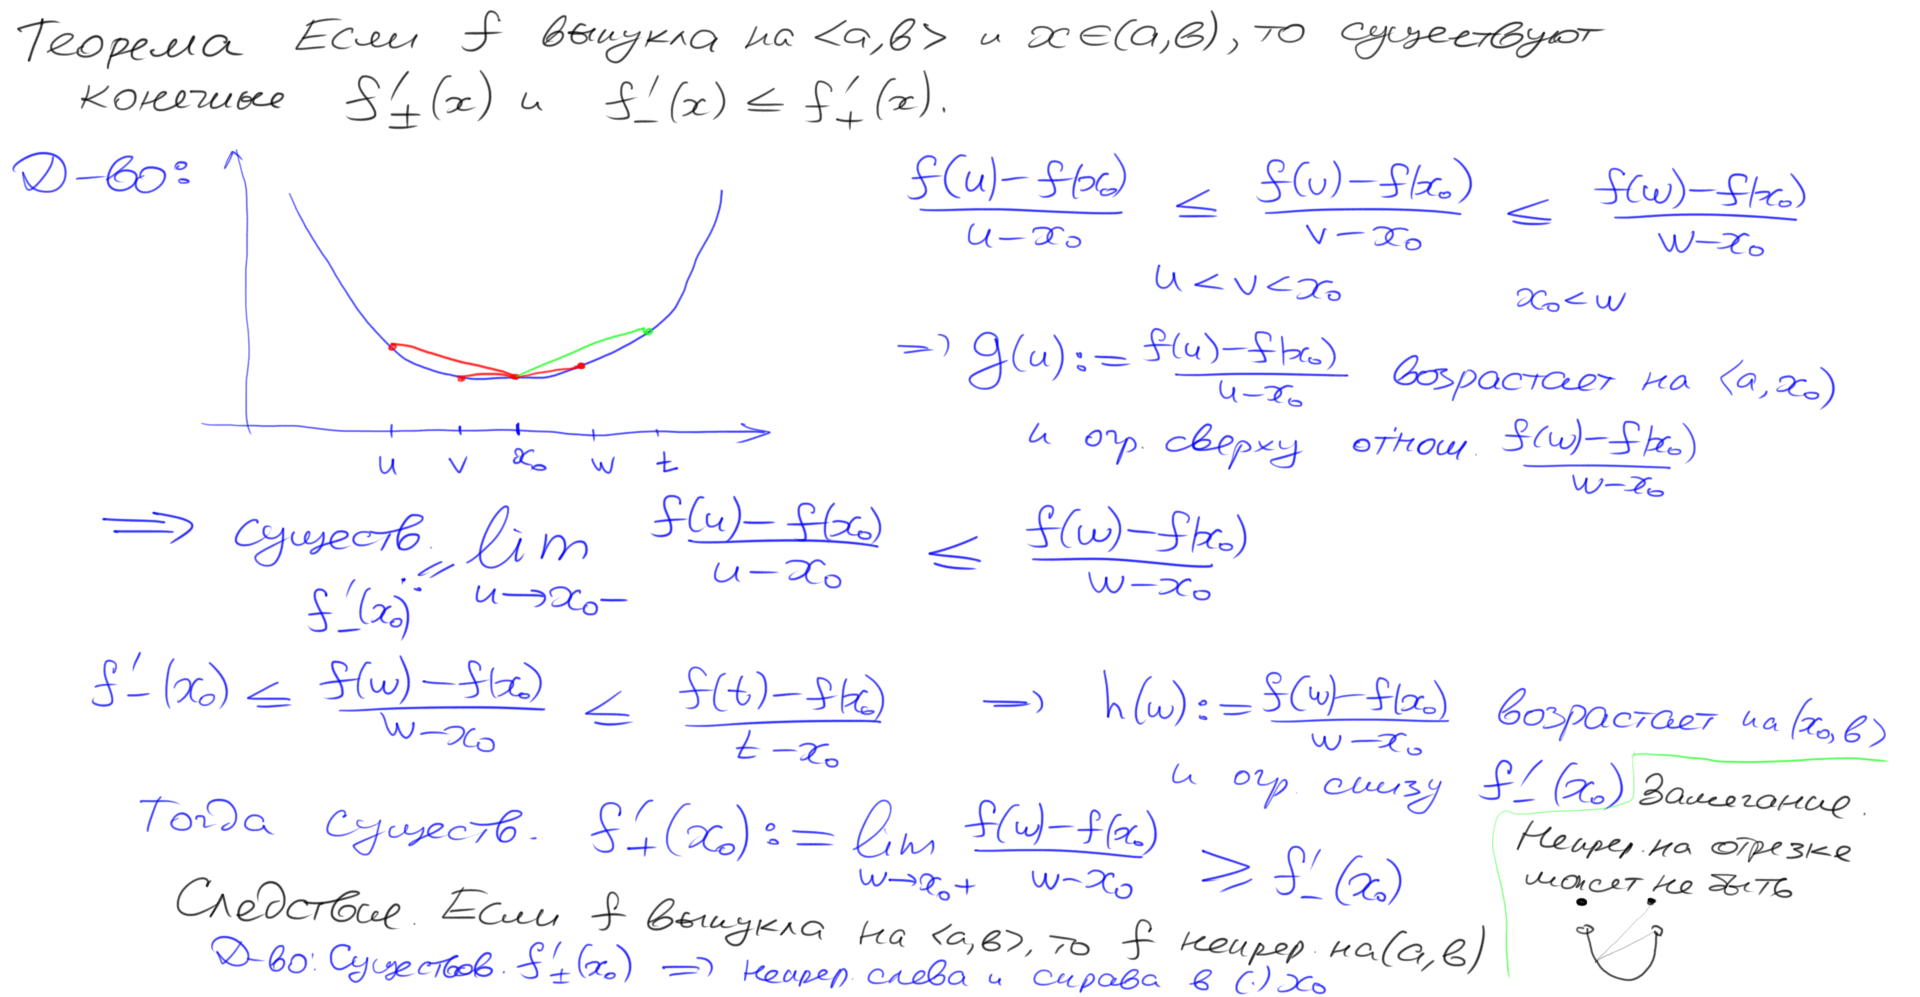 Теорема Если f выпукла на <a,b> и x∈(a,b), то существуют
конечные f'±(x) и f'₋(x) ≤ f'₊(x).
Д-во:
(f(u)-f(x₀))/(u-x₀) ≤ (f(v)-f(x₀))/(v-x₀) ≤ (f(w)-f(x₀))/(w-x₀)
u<v<x₀ x₀<w
⇒ g(u):= (f(u)-f(x₀))/(u-x₀) возрастает на <a,x₀)
и огр. сверху отнош. (f(w)-f(x₀))/(w-x₀)
u v x₀ w t
⇒ существ. lim u→x₀- (f(u)-f(x₀))/(u-x₀) ≤ (f(w)-f(x₀))/(w-x₀)
f'₋(x₀) :=
f'₋(x₀) ≤ (f(w)-f(x₀))/(w-x₀) ≤ (f(t)-f(x₀))/(t-x₀) ⇒ h(w):= (f(w)-f(x₀))/(w-x₀) возрастает на (x₀,b>
и огр. снизу f'₋(x₀)
Тогда существ. f'₊(x₀):= lim w→x₀+ (f(w)-f(x₀))/(w-x₀) ≥ f'₋(x₀)
Замечание.
Непрер. на отрезке
может не быть
Следствие. Если f выпукла на <a,b>, то f непрер. на (a,b)
Д-во: Существов. f'±(x₀) ⇒ непрер. слева и справа в (·) x₀